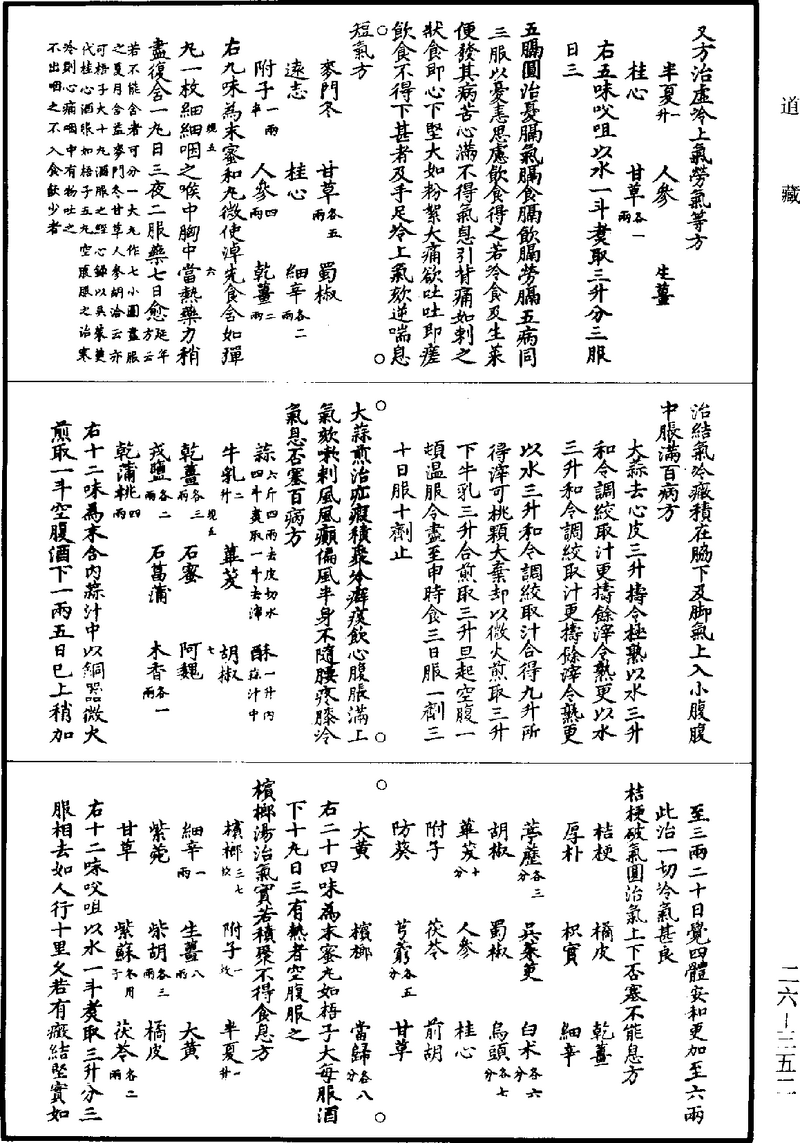 道藏
又方治虛冷上氣勞氣等方
半夏一升 人參 生薑
桂心 甘草各一兩
右五味㕮咀以水一斗煑取三升分三服
日三
五膈圓治憂膈氣膈食膈飲膈勞膈五病同
三服以憂恚思慮飲食得之若冷食及生菜
便發其病苦心滿不得氣息引背痛如刺之
狀食即心下堅大如粉絮大痛欲吐吐即瘥
飲食不得下甚者及手足冷上氣欬逆喘息
短氣方
麥門冬 甘草各五兩 蜀椒
遠志 桂心 細辛各二兩
附子一兩半 人參四兩 乾薑二兩
右九味為末蜜和丸微使淖先食含如彈
丸一枚細細咽之喉中胸中當熱藥力稍
盡復含一丸日三夜二服藥七日愈延年方云
若不能含者可分一大丸作七小圓盡服
之夏月含益麥門冬甘草人參胡洽云亦
可梧子大十丸酒服之經心錄以吳茱萸
代桂心酒服如梧子五丸空腹服之治寒
冷則心痛咽中有物吐之
不出咽之不入食飲少者
治結氣冷癥積在脇下及脚氣上入小腹腹
中脹滿百病方
大蒜去心皮三升擣令極熟以水三升
和令調絞取汁更擣餘滓令熟更以水
三升和令調絞取汁更擣餘滓令熟更
以水三升和令調絞取汁合得九升所
得滓可桃顆大棄却以微火煎取三升
下牛乳三升合煎取三升旦起空腹一
頓溫服令盡至申時食三日服一劑三
十日服十劑止
大蒜煎治疝瘕積聚冷癖痰飲心腹脹滿上
氣欬嗽刺風風癲偏風半身不隨腰疼膝冷
氣息否塞百病方
蒜六斤四兩去皮切水四斗煑取一斗去滓 酥一升內蒜汁中
牛乳二升 蓽茇 胡椒
乾薑各三兩 石蜜 阿魏
戎鹽各二兩 石菖蒲 木香各一兩
乾蒲桃四兩
右十二味為末合內蒜汁中以銅器微火
煎取一斗空腹酒下一兩五日已上稍加
至三兩二十日覺四體安和更加至六兩
此治一切冷氣甚良
桔梗破氣圓治氣上下否塞不能息方
桔梗 橘皮 乾薑
厚朴 枳實 細辛
葶藶各三分 吳茱萸 白术各六分
胡椒 蜀椒 烏頭各七分
蓽茇十分 人參 桂心
附子 茯苓 前胡
防葵 芎藭各五分 甘草
大黃 檳榔 當歸各八分
右二十四味為末蜜丸如梧子大每服酒
下十丸日三有熱者空腹服之
檳榔湯治氣實若積聚不得食息方
檳榔三七枚 附子一枚 半夏一升
細辛一兩 生薑八兩 大黃
紫菀 柴胡各三兩 橘皮
甘草 紫蘇冬用子 茯苓各二兩
右十二味㕮咀以水一斗煑取三升分三
服相去如人行十里久若有癥結堅實如
二六-三五二